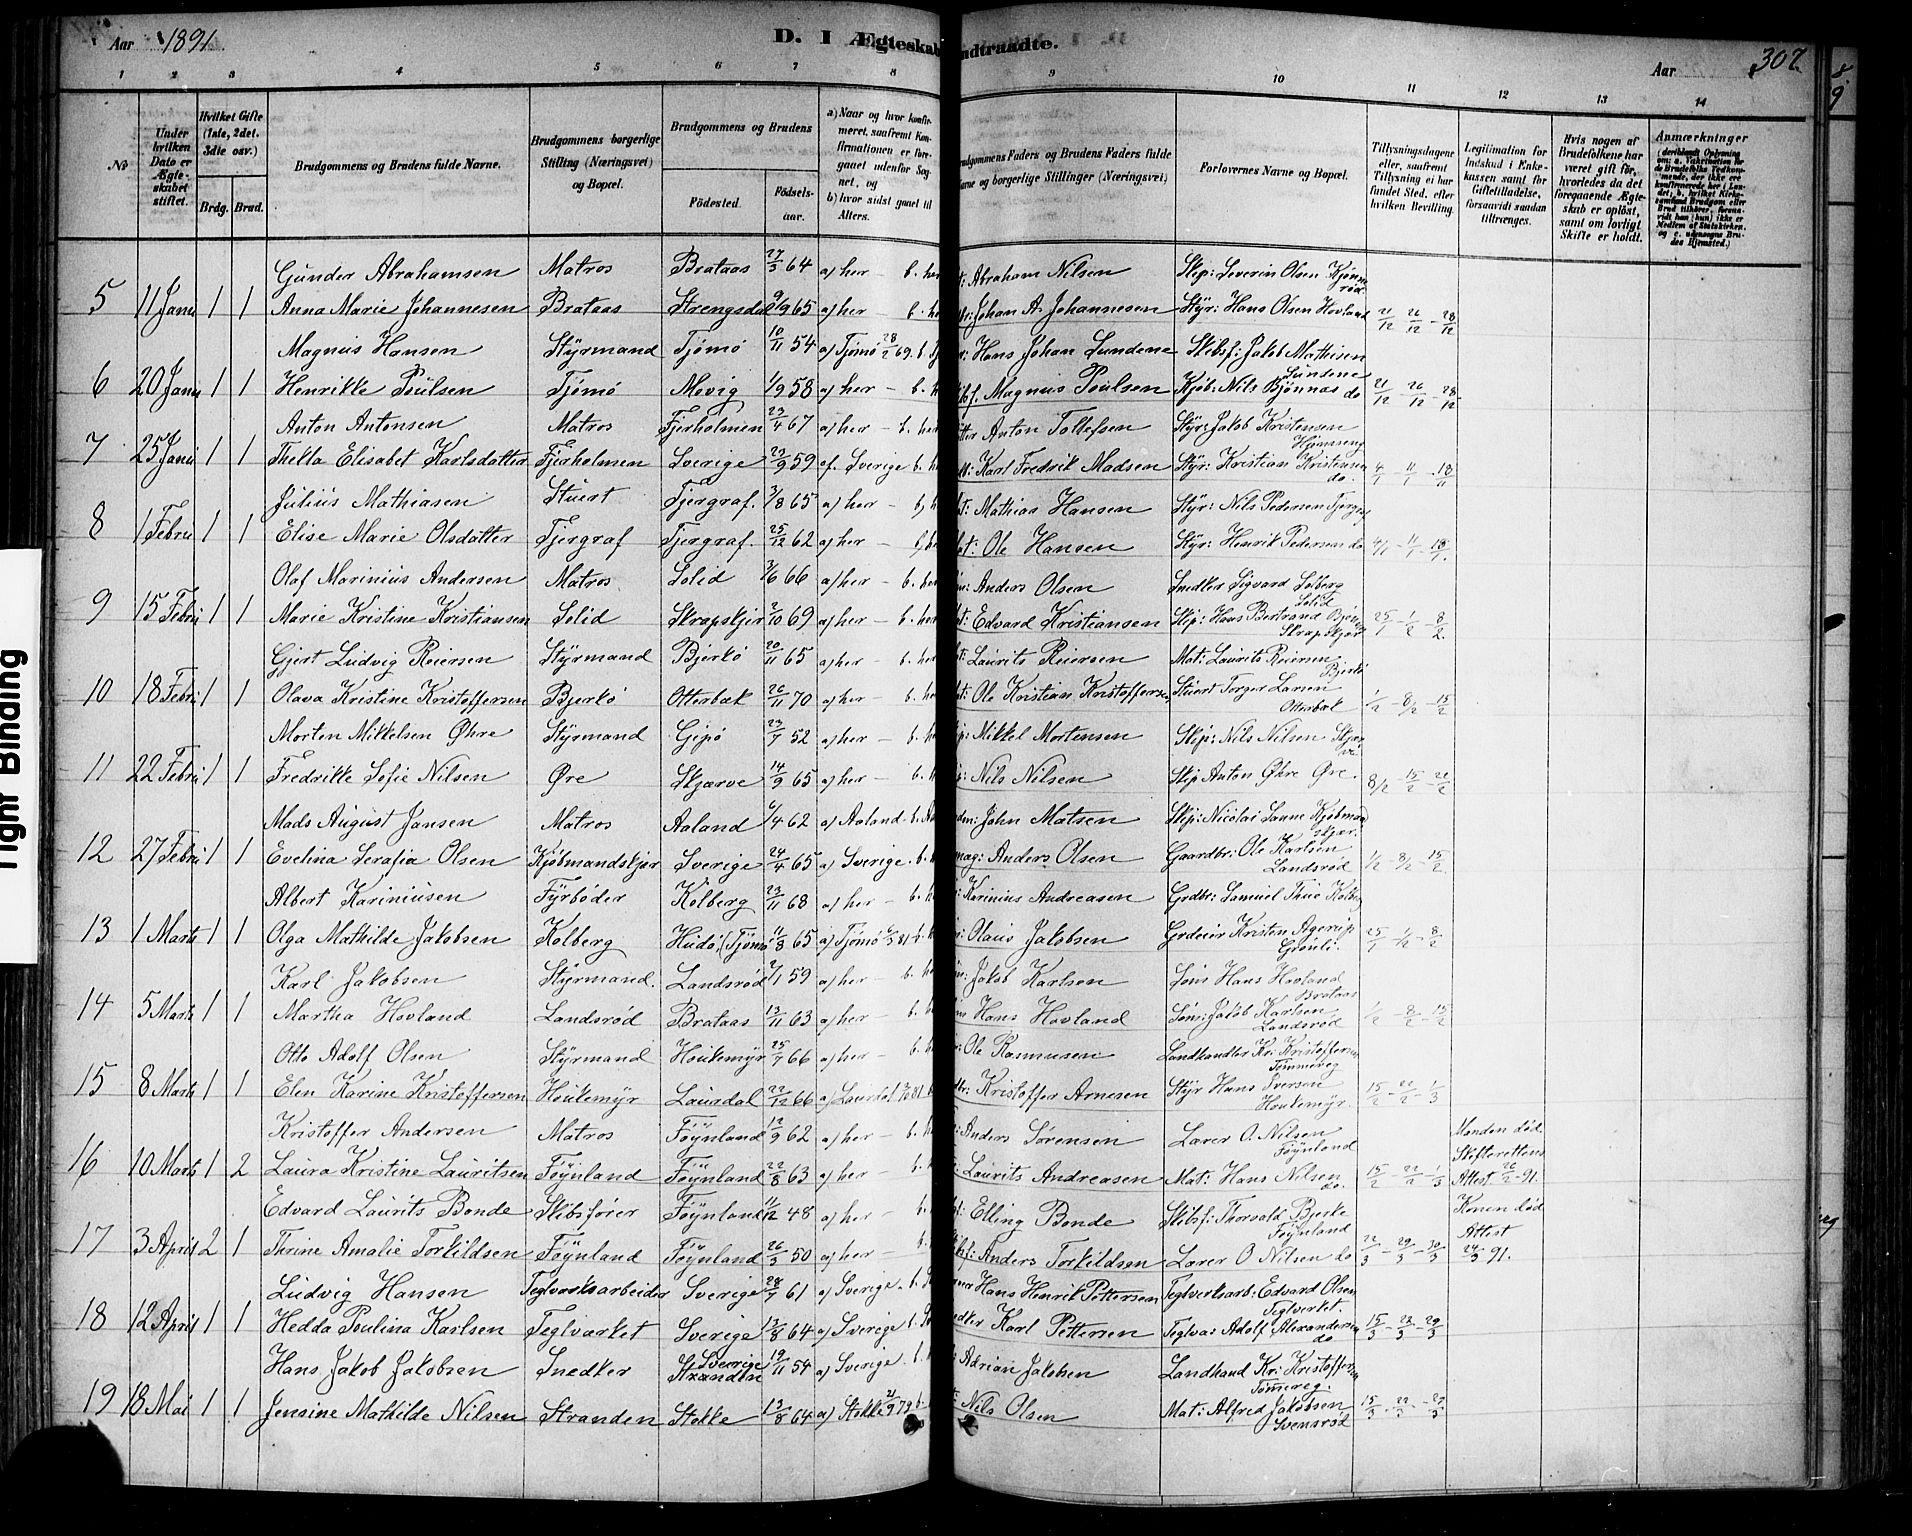 Aar 1891.
D. I Ægteskab
indtraadte.
Aar 307.
1 2 3 4 5 6 7 8 9 10 11 12 13 14
No
Under hvilken Dato er Ægteskabet stiftet.
Hvilket Gifte (1ste, 2det. 3die osv.)
Brdg. Brud.
Brudgommens og Brudens fulde Navne.
Brudgommens borgerlige Stilling (Næringsvei) og Bopæl.
Brudgommens og Brudens
Födested.
Födsels-aar.
a) Naar og hvor konfirmeret, saafremt Konfirmationen er foregaaet udenfor Sognet, og
b) hvor sidst gaaet til Alters.
Brudgommens Faders og Brudens Faders fulde Navne og borgerlige Stillinger (Næringsvei)
Forlovernes Navne og Bopæl.
Tillysningsdagene eller, saafremt Tillysning ei har fundet Sted, efter hvilken Bevilling.
Legitimation for Indskud i Enkekassen samt for Giftetilladelse, forsaavidt saadan tiltrænges.
Hvis nogen af Brudefolkene har været gift för, hvorledes da det foregaaende Ægteskab er oplöst, samt om lovligt Skifte er holdt.
Anmærkninger
Gunder Abrahamsen Matros Brataas 27/3 64 a) her – b. her Abraham Nilsen Skip: Severin Olsen Kjønnerød
5 11 Janu 1 1 Anna Marie Johannesen Brataas Strengsdal 9/9 65 a) her – b. her Johan A. Johannesen Styr: Hans Olsen Hovland 21/12 – 26/12 – 28/12
Magnus Hansen Styrmand Tjömö 10/11 54 a) Tjömö 28/2 69. b. Hans Johan Sundene Skibsf: Jakob Mathisen Sundene
6 20 Janu 1 1 Henrikke Poulsen Tjömö Movig 1/9 58 a) her – b. Magnus Poulsen Kjöb: Nils Bjönnas do 21/12 – 26/12 – 28/12
Anton Antonsen Matros Fjerholmen 23/4 67 a) her – b. her Anton Tollefsen Styr: Jakob Kristensen
7 25 Janu 1 1 Thekla Elisabet Karlsdatter Fjerholmen Sverige 29/9 59 a. Sverige b. Karl Fredrik Madsen Styr: Kristian Kristensen do. 4/1 – 11/1 – 18/1
Julius Mathiasen Stuert Fjergraf. 3/8 65 a) her – b) her Mathias Hansen Styr: Nils Pedersen Fjergraf
8 1 Febru 1 1 Elise Marie Olsdatter Fjergraf Fjergraf. 25/12 62 a) her – b) her Ole Hansen Styr: Henrik Pedersen do 4/1 – 11/1 – 18/1.
Olaf Marinius Andersen Matros Solid 3/6 66 a) her – b. her Anders Olsen Snedker Sigvard Solberg Solid
9 15 Febru 1 1 Marie Kristine Kristiansen Solid Skrapskjer 2/10 69 a) her – b. her Edvard Kristiansen Skip: Hans Bertrand Skrapskjær 25/1 – 1/2 – 8/2.
Gjert Ludvig Reiersen Styrmand Bjerkö 20/11 65 a) her – b. her Laurits Reiersen Mat: Laurits Reiersen Bjerkö
10 18 Febru 1 1 Olava Kristine Kristoffersen Bjerkö Otterbek 26/11 70 a) her – b. her Ole Kristian Kristoffersen Stuert Torger Larsen Otterbæk 1/2 – 8/2 – 15/2
Morten Mikkelsen Øhre Styrmand Gipö 23/7 52 a) her – b. her Mikkel Mortensen Skip: Nils Nilsen
11 22 Febru 1 1 Fredrikke Sofie Nilsen Øre Skjærve 14/9 65 a) her – b. Nils Nilsen Skip Anton Øhre Øre. 8/2 – 15/2 – 22/2
Mads August Jansen Matros Aaland 6/4 62 a) Aaland. b. John Matsen Skip: Nicolai
12 27 Febru 1 1 Evelina Serafia Olsen Kjöbmandskjer Sverige 24/4 65 a) Sverige. b. Anders Olsen Gaardbr: Ole Karlsen Landsrød 1/2 – 8/2 – 15/2
Albert Kariniusen Fyrbøder Kolberg 23/11 68 a) her – b. her Karinius Andreasen Grdbr: Samuel Thue Kolberg
13 1 Marts 1 1 Olga Mathilde Jakobsen Kolberg Hudö (Tjömö 11/8 65 a) Tjömö Olaus Jakobsen Kristen Agerup Grönli. 25/1 – 1/2 – 8/2
Karl Jakobsen Styrmand. Landsrød 2/1 59 a) her – b. her Jakob Karlsen Søm Hans Hovland Brataas
14 5 Marts 1 1 Martha Hovland Landsrød Brataas 13/11 63 a) her – b. Hans Hovland Søm: Jakob Karlsen Landsrød 1/2 – 8/2 – 15/2
Otto Adolf Olsen Styrmand Houkemyr 25/7 66 a) her – b. Ole Rasmussen Landhandler Kr: Kristoffersen Tømmereg
15 8 Marts 1 1 Elen Karine Kristoffersen Houkemyr Laurdal 22/12 66 a) Laurdal Kristoffer Arnesen Styr Hans Iversen Houkemyr. 15/2 – 22/2 – 1/3
Kristoffer Andersen Matros Föynland 12/9 62 a) her – b. Anders Sörensen Lærer O. Nilsen Föynland Manden død.
16 10 Marts 1 2 Laura Kristine Lauritsen Föynland Föynland 22/8 63 a) her – b. Laurits Andreasen Mat: Hans Nilsen do. 15/2 – 22/2 – 1/3 Skifterettens Attest 26/2 – 91.
Edvard Laurits Bonde Skibsfører Föynland 11/12 48 a) her – b. Elling Bonde Skibsf: Thorvald Bjerke Föynland Konen död
17 3 April 2 1 Thrine Amalie Torkildsen Föynland Föynland 26/3 50 a) her – b. Anders Torkildsen Lærer O. Nilsen do 22/3 – 29/3 – 30/3 Attest 24/3 91.
Ludvig Hansen Teglværksarbeider Sverige 28/7 61 a) Sverige. b. Hans Henrik Pettersen Teglverksarb: Edvard Olsen Teglverket.
18 12 April 1 1 Hedda Poulina Karlsen Teglværket Sverige 13/8 64 a) Sverige. b. Karl Pettersen Teglva: Adolf Alexandersen do 15/3 – 22/3 – 29/3
Hans Jakob Jakobsen Snedker Sverige Stranden 19/11 54 a) Sverige. b. Adrian Jakobsen Landhand Kr: Kristoffersen Tömmereg.
19 18 Mai 1 1 Jensine Mathilde Nilsen Stranden Stokke 13/8 64 a) Stokke 21/9 79 b. Nils Olsen Mat: Alfred Jakobsen Svensrød 15/3 – 22/3 – 29/3
Tight Binding